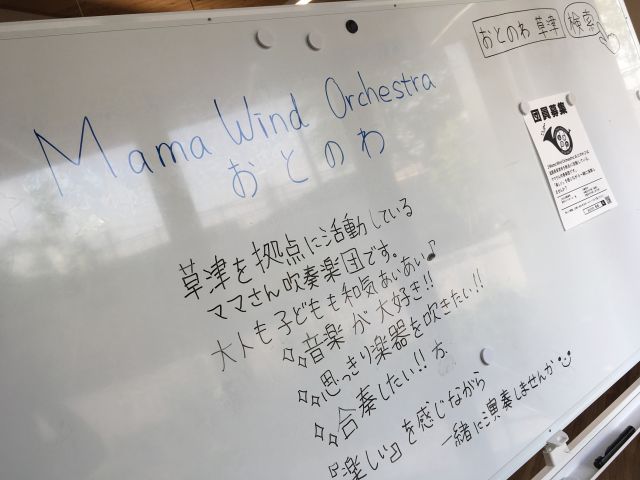 おとのわ 草津 検索
Mama Wind Orchestra
おとのわ
団員募集
草津を拠点に活動している
ママさん吹奏楽団です。
大人も子どもも和気あいあい♪
音楽が大好き!!
思っきり楽器を吹きたい!!
合奏したい!! 方
『楽しい』を感じながら
一緒に演奏しませんか